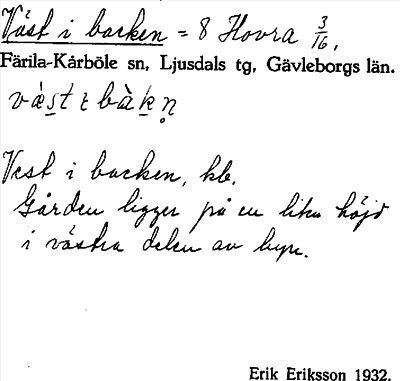 Väst i backen = 8 Hovra 3/16,
Färila-Kårböle sn, Ljusdals tg, Gävleborgs län.
Vest i backen, kb.
Gården ligger på en liten höjd
i västra delen av byn.
Erik Eriksson 1932.